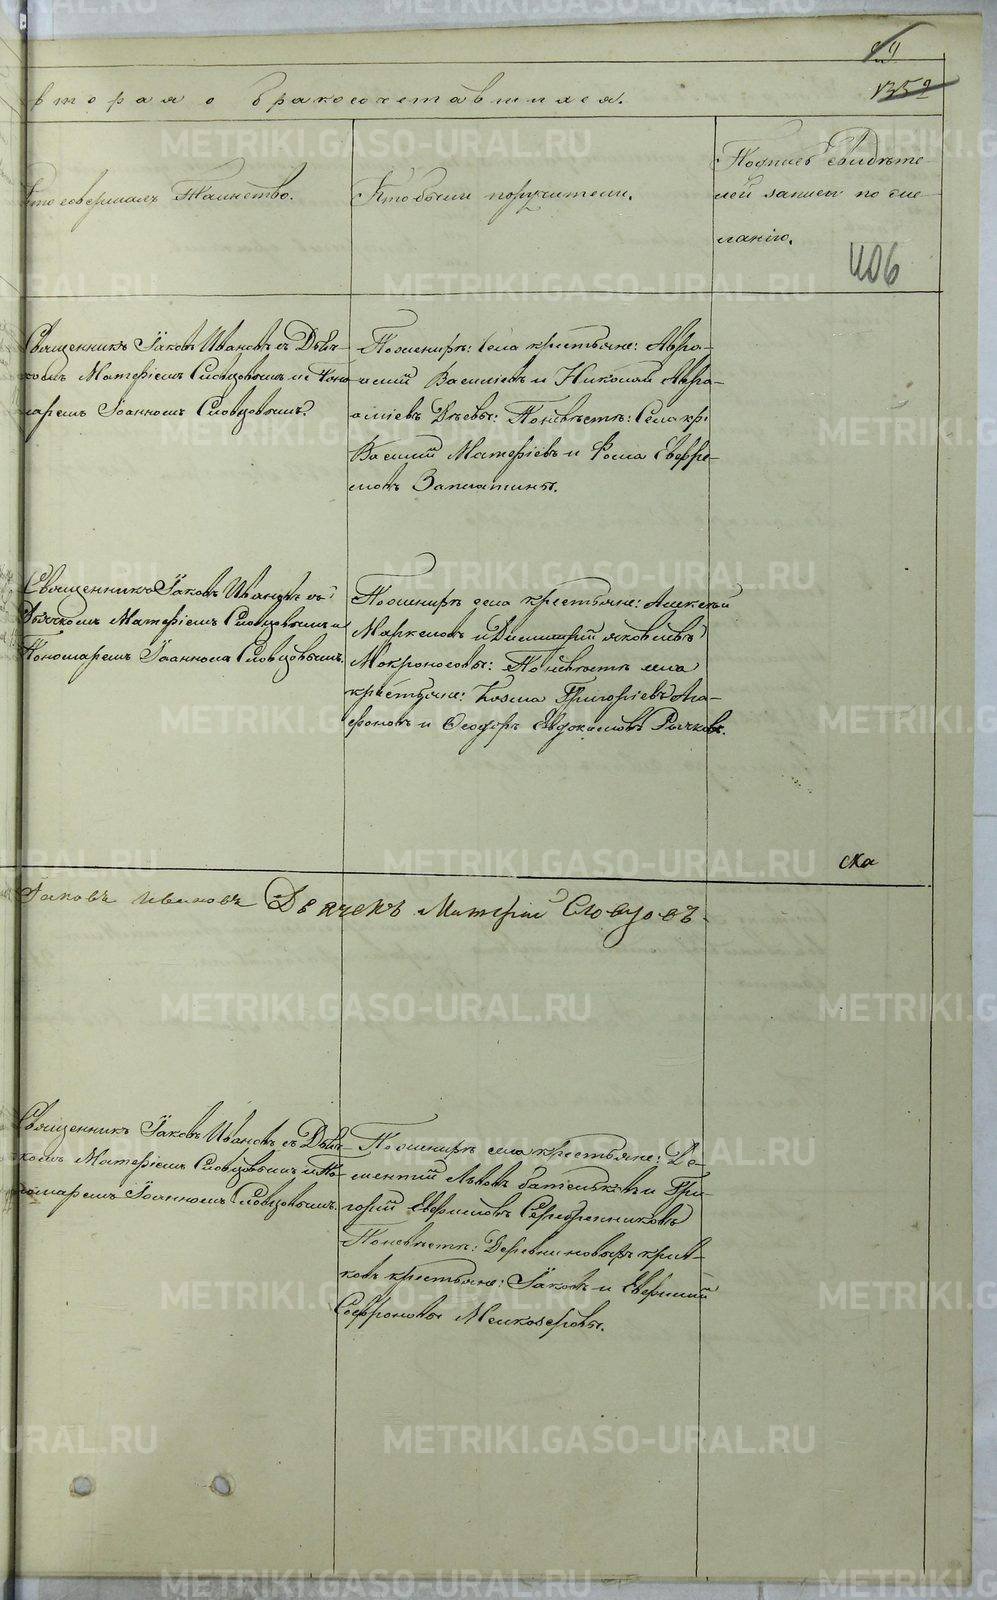 второая о бракосочетавшихся.
1352
Кто совершалъ Таинство.
Кто были поручители.
Подпись свидѣте-
лей записи по же-
ланію.
406
Священникъ Іаковъ Ивановъ съ Дьяч-
комъ Матѳіемъ Словцовымъ и Поно-
маремъ Іоанномъ Словцовымъ.
По женихѣ: села крестьяне: Авра-
амій Василіевъ и Николай Авра-
аміевъ Дѣевы: По невѣстѣ: Села кр:
Василій Матѳіевъ и Фома Евфре-
мовъ Заплатины.
Священникъ Іаковъ Ивановъ съ
Дьячкомъ Матѳіемъ Словцовымъ и
Пономаремъ Іоанномъ Словцовымъ.
По женихѣ села крестьяне: Алексѣй
Маркеловъ и Димитрій Яковлевъ
Мокроносовы: По невѣстѣ села
крестьяне: Козма Григоріевъ Ага-
фоновъ и Ѳеодоръ Евдокимовъ Рычковъ.
ска
Іаковъ Ивановъ Дьячекъ Матѳій Словцовъ.
Священникъ Іаковъ Ивановъ съ Дьяч-
комъ Матѳіемъ Словцовымъ и По-
номаремъ Іоанномъ Словцовымъ.
По женихѣ села крестьяне: Де-
ментий Львовъ и Гри-
горій Евфимовъ Серебренниковъ
По невѣстѣ: Деревни новыхъ крив-
ковъ крестьяне: Іаковъ и Евфимий
Софроновы Мелкозеровы.
METRIKI.GASO-URAL.RU